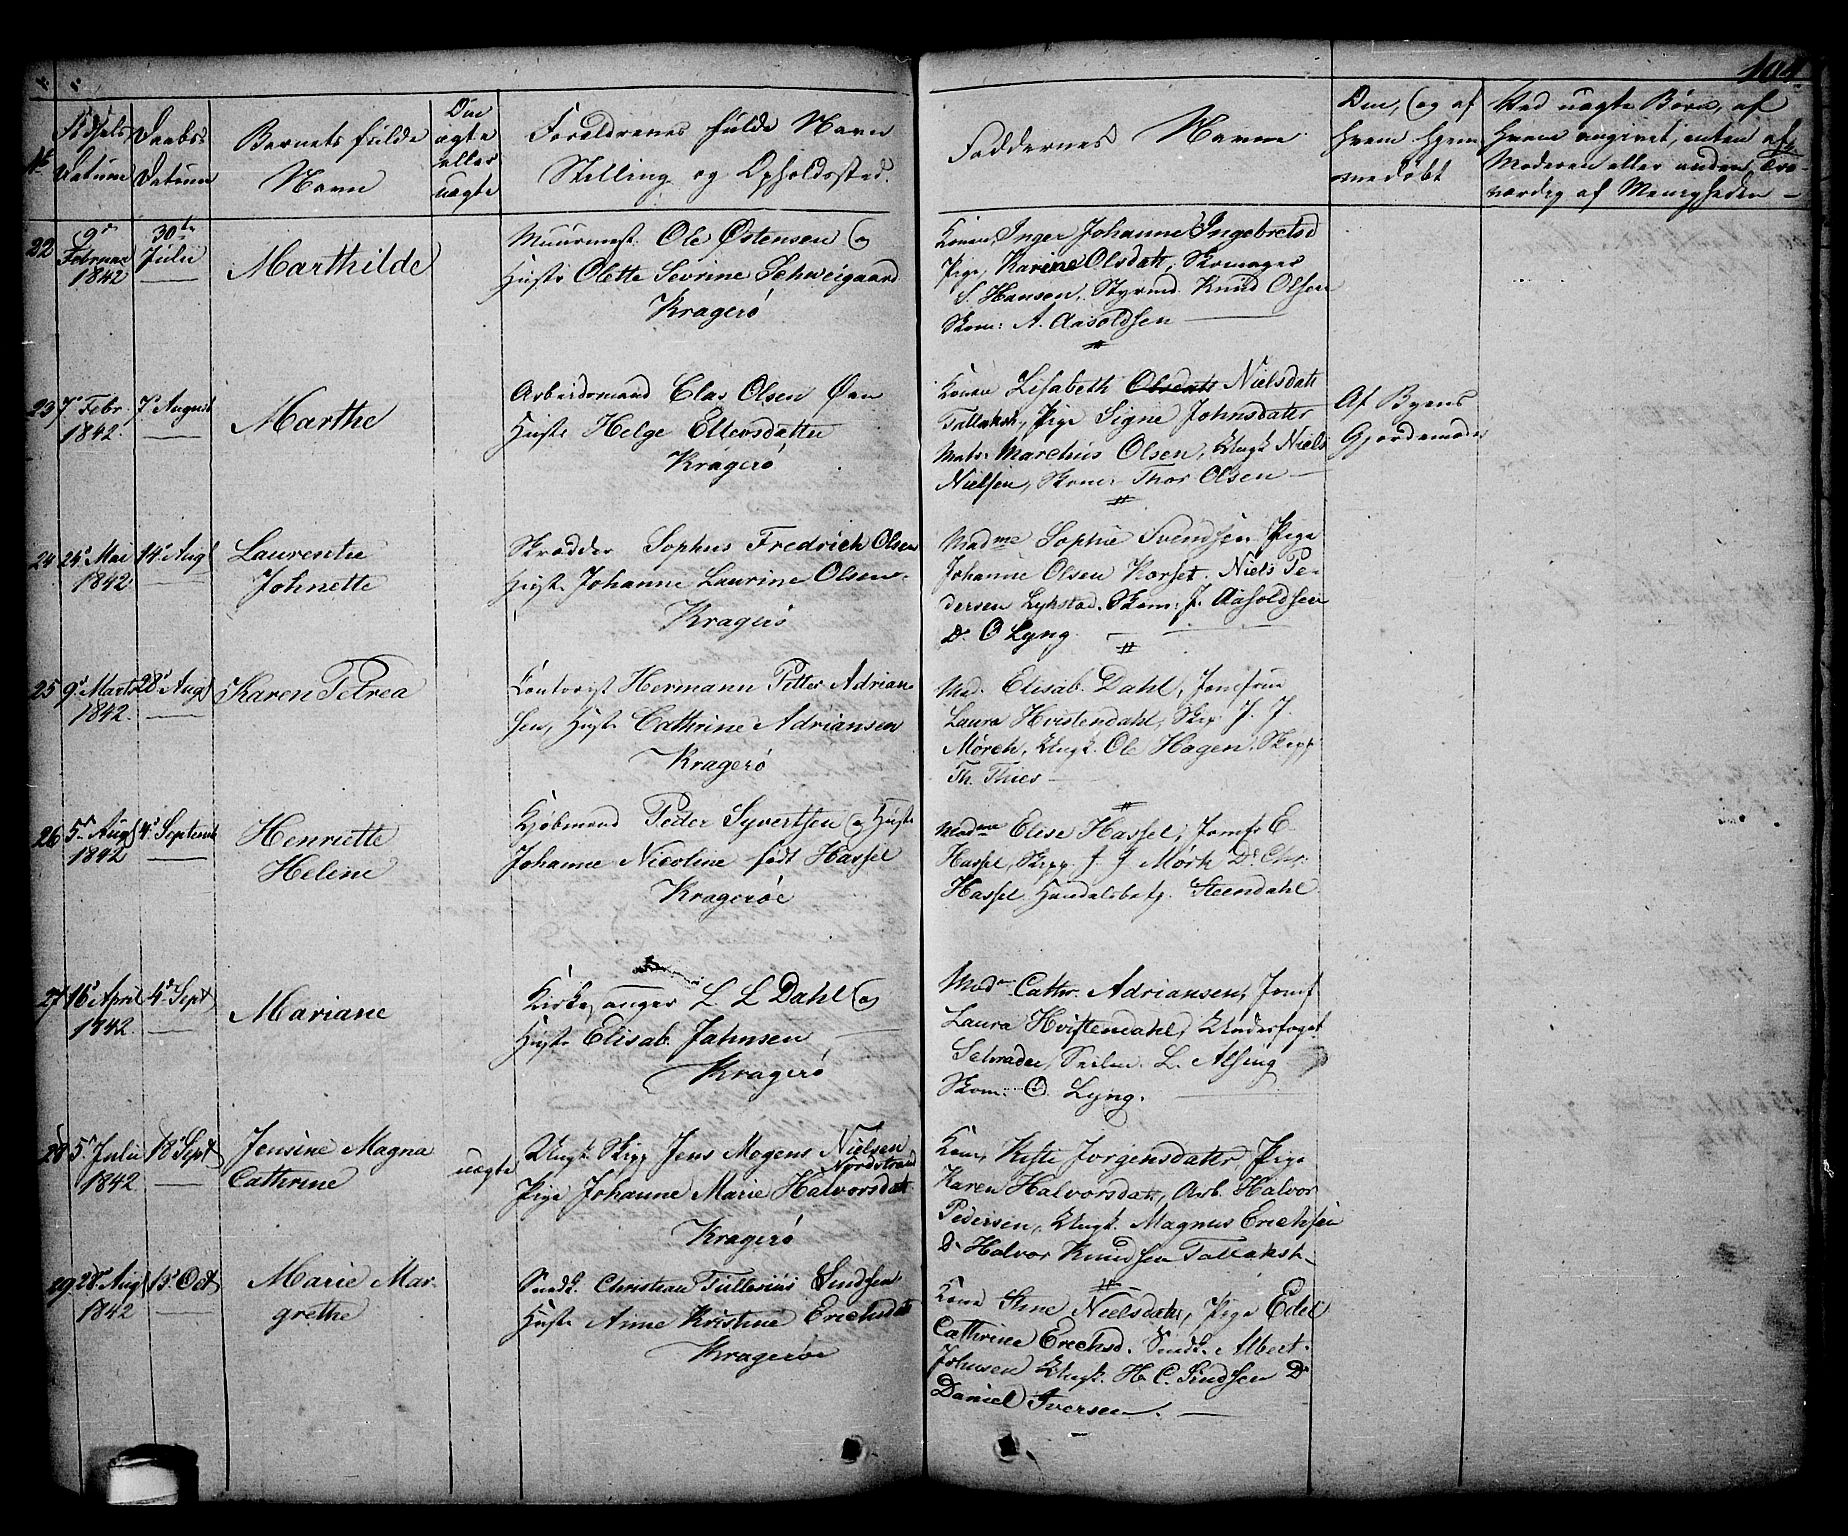 104
No
Fødsels
Datum
Daabs
Datum
Barnets fulde
Navn
Om
ægte
eller
uægte
Forældrenes fulde Navn
Stilling og Opholdssted.
Faddernes Navne
Om, og af
hvem hjem
medøbt
Ved uægte Børn, af
hvem angivet, enten af
Moderen eller anden Tro-
værdig af Menigheden
22
9de
Februar
1842
30te
Julii
Marthilde
Muurmest. Ole Østensen og
Hustr Olette Sevrine Schweigaard
Kragerö
Konen Inger Johanne Ingebretsd
Pige Karine Olsdatt, Skomager
S. Hansen, Styrmd. Knud Olsen
Skom: A. Aasoldsen
23
7r Febr.
1842.
7r August
Marthe
Arbeidsmand Elas Olsen Øen
Hustr Helge Ellevsdatter
Kragerö
Konen Lisabeth Olsdatt Nielsdatt
Tallaksh, Pige Signe Johnsdatter
Matr. Marchus Olsen, Ungk Niels
Nielsen, Skom: Thor Olsen
Af Byens
Gjordemoder
24
24r Mai
1842.
14r Augt
Laurentze
Johnette
Skrædder Sophus Fredrich Olsen
Hust. Johanne Laurine Olsen.
Kragerö
Madme Sophie Svendsen Pige
Johanne Olsen Korset. Niels Pe-
dersen Lykstad. Skom: J. Aasoldsen
Do O Lyng.
25
9r Marts
1842.
28r Augt
Karen Petrea
Contorist Hermann Petter Adrian
sen, Hust. Cathrine Adriansen
Kragerö
Mad. Elisab. Dahl, Jomfrue
Laura Hvistendahl, Skip. J. J.
Mörch, Ungk. Ole Hagen, Skipp
Th. Thies
26
5r Augt
1842
4r Septemb
Henriette
Helene
Kjøbmand Peder Syvertsen og Hustr
Johanne Nicoline født Hassel
Kragerøe
Madme Elise Hassel, Jomfr E.
Hassel, Skipp. J. J Mörk Do Chr.
Hassel, Handelsbetj. Steendahl
27
16r April
1842
4r Sept
Mariane
Kirkesanger L. L Dahl og
Hustr Elisab. Jahnsen
Kragerö
Madm Cathr. Adriansen, Jomf
Laura Hvistendahl, Underfoget
Schrader, Seilm. L. Alsing
Skom: O. Lyng.
28
5r Julii
1842
18r Sept
Jensine Magna
Cathrine
uægte
Ungk Skipp Jens Mogens Nielsen
Nordstrand
Pige Johanne Marie Halvorsdatt
Kragerö
Kone Kisti Jorgensdatter Pige
Karen Halvorsdatt, Arb. Halvor
Pedersen, Ungk. Magnus Erichsen
Do Halvor Knudsen Tallaksh.
29
28r Augt
1842
15r Oct
Marie Mar
grethe
Snedk. Christian Tullesius Sindsen
Hustr Anne Kristine Erichsdatt
Kragerøe
Kone Stine Nielsdatt, Pige Edel
Cathrine Erechsd. Snedk. Albert
Johnsen Ungk. H. C. Sindsen Do
Daniel Iversen.